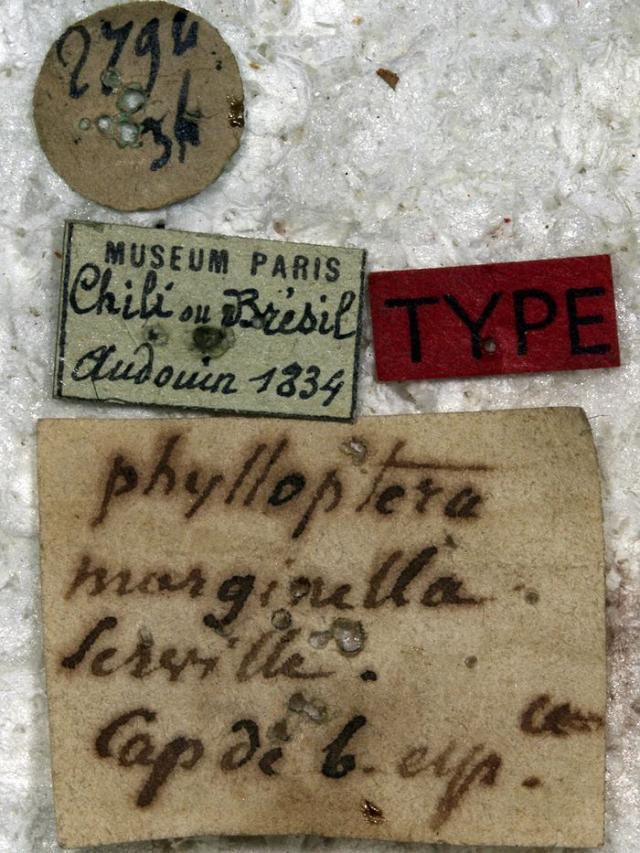 2794
34
MUSEUM PARIS
Chili ou Brésil
Audouin 1834
TYPE
phylloptera
marginella
Serville.
Cap de b. esp.